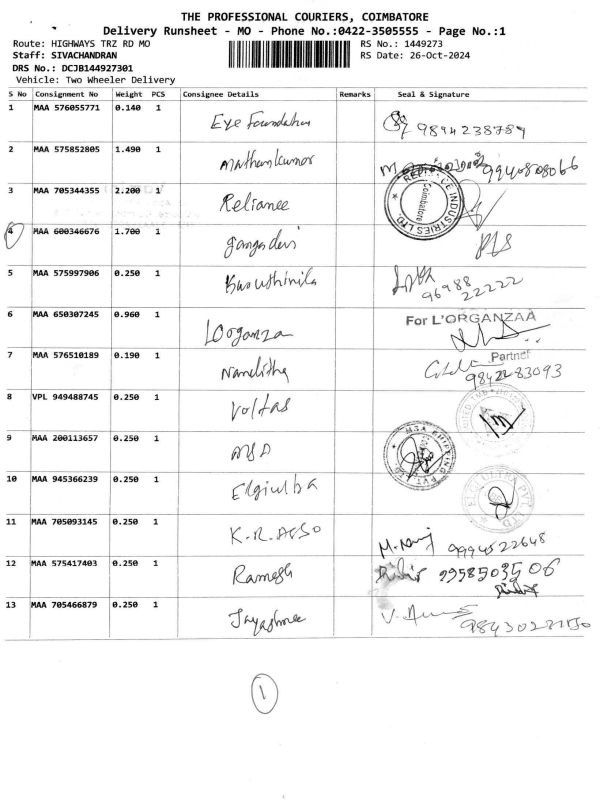 THE PROFESSIONAL COURIERS, COIMBATORE
Delivery Runsheet - MO - Phone No.:0422-3505555 - Page No.:1
Route: HIGHWAYS TRZ RD MO RS No.: 1449273
Staff: SIVACHANDRAN RS Date: 26-Oct-2024
DRS No.: DCJB144927301
Vehicle: Two Wheeler Delivery
S No Consignment No Weight PCS Consignee Details Remarks Seal & Signature
1 MAA 576055771 0.140 1 Eye Foundation 9894238789
2 MAA 575852805 1.490 1 Mathankumar 9940808066
3 MAA 705344355 2.200 1 Reliance RELIANCE INDUSTRIES LTD. Coimbatore
4 MAA 600346676 1.700 1 gangadevi
5 MAA 575997906 0.250 1 96988 22222
6 MAA 650307245 0.960 1 Lorganza For L'ORGANZAA
Partner
7 MAA 576510189 0.190 1 Nanditha 9842283093
8 VPL 949488745 0.250 1 Voltas
9 MAA 200113657 0.250 1 MSA MSA SHIPPING PVT LTD
10 MAA 945366239 0.250 1 Elgiulba
11 MAA 705093145 0.250 1 K.R. 9994522648
12 MAA 575417403 0.250 1 Ramesh 9958503506
13 MAA 705466879 0.250 1 Jayashree
1